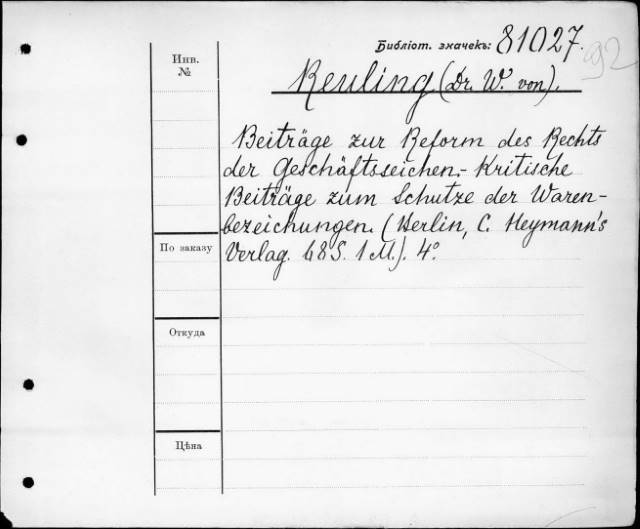 Библіот. значекъ: 81027.
92
Инв.
№
Reuling (Dr. W. von).
Beiträge zur Reform des Rechts
der Geschäftsseichen. - Kritische
Beiträge zum Schutze der Waren-
bezeichungen. (Berlin, C. Heymann's
Verlag. 68 S. 1 M.). 4°.
По заказу
Откуда
Цѣна